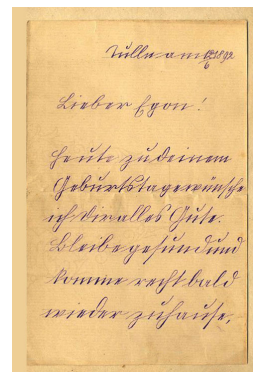 Tulln am 6/6 1892
Lieber Egon!
Heute zu deinem
Geburtstage wünsche
ich dir alles Gute.
Bleibe gesund und
komme recht bald
wieder zuhause.